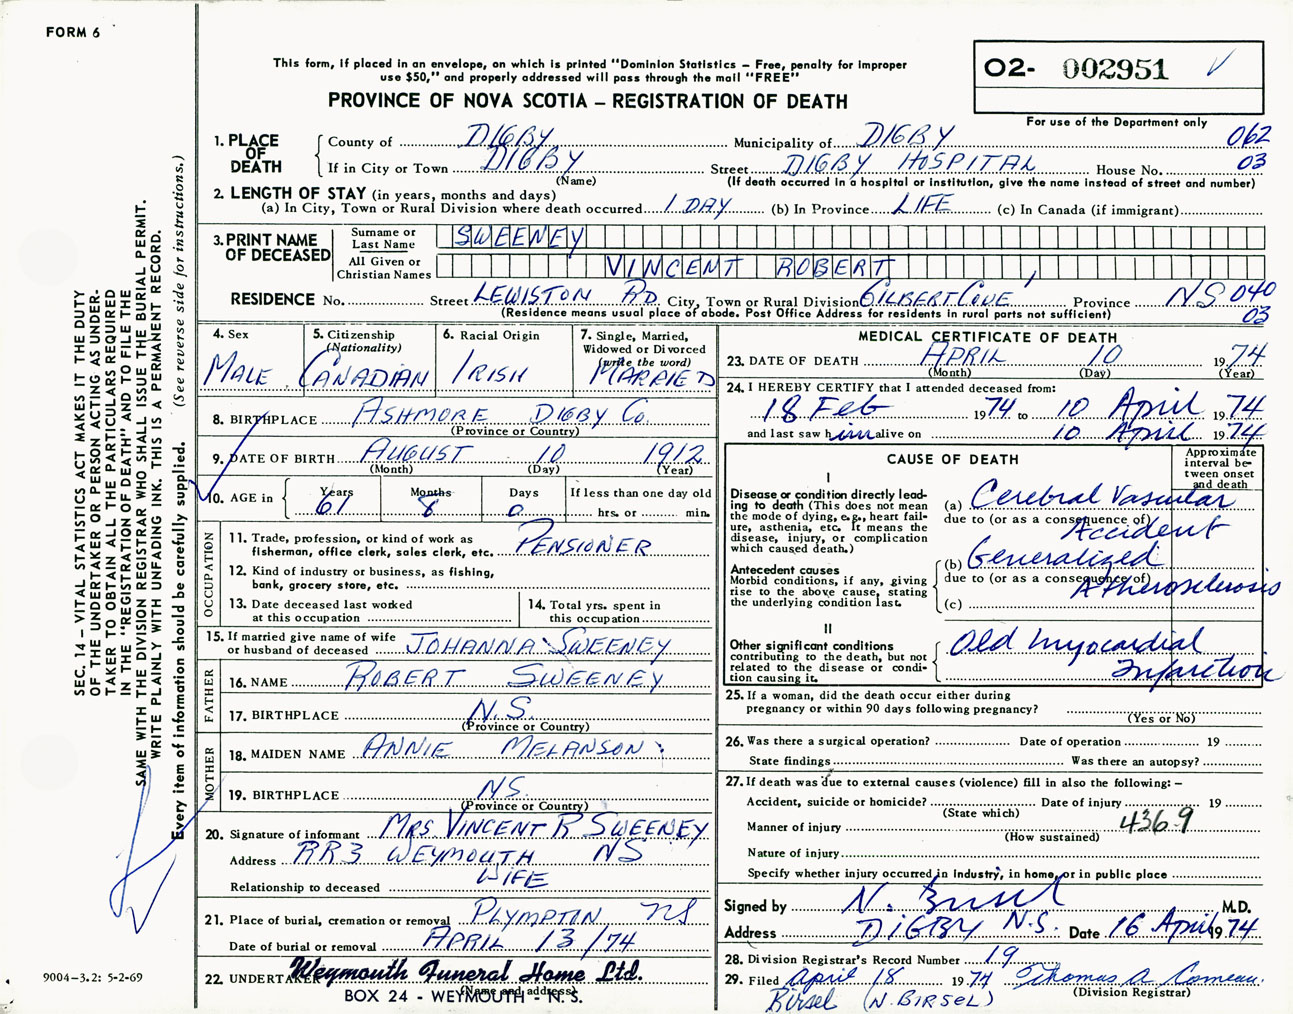 FORM 6
This form, if placed in an envelope, on which is printed "Dominion Statistics – Free, penalty for improper
use $50," and properly addressed will pass through the mail "FREE"
PROVINCE OF NOVA SCOTIA – REGISTRATION OF DEATH
02- 002951
For use of the Department only
062
03
1. PLACE OF DEATH
County of DIGBY Municipality of DIGBY
If in City or Town DIGBY Street DIGBY HOSPITAL House No.
(Name) (If death occurred in a hospital or institution, give the name instead of street and number)
2. LENGTH OF STAY (in years, months and days)
(a) In City, Town or Rural Division where death occurred 1 DAY (b) In Province LIFE (c) In Canada (if immigrant)
3. PRINT NAME OF DECEASED
Surname or Last Name SWEENEY
All Given or Christian Names VINCENT ROBERT
RESIDENCE No. Street LEWISTON RD. City, Town or Rural Division GILBERT COVE Province N.S 040
(Residence means usual place of abode. Post Office Address for residents in rural parts not sufficient) 03
4. Sex
MALE
5. Citizenship
(Nationality)
CANADIAN
6. Racial Origin
IRISH
7. Single, Married,
Widowed or Divorced
(write the word)
MARRIED
8. BIRTHPLACE ASHMORE DIGBY CO.
(Province or Country)
9. DATE OF BIRTH AUGUST 10 1912
(Month) (Day) (Year)
10. AGE in Years Months Days If less than one day old
61 8 0 hrs. or min.
OCCUPATION
11. Trade, profession, or kind of work as
fisherman, office clerk, sales clerk, etc. PENSIONER
12. Kind of industry or business, as fishing,
bank, grocery store, etc.
13. Date deceased last worked
at this occupation
14. Total yrs. spent in
this occupation
15. If married give name of wife
or husband of deceased JOHANNA SWEENEY
FATHER
16. NAME ROBERT SWEENEY
17. BIRTHPLACE N.S.
(Province or Country)
MOTHER
18. MAIDEN NAME ANNIE MELANSON
19. BIRTHPLACE NS.
(Province or Country)
20. Signature of informant MRS VINCENT R SWEENEY
Address RR3 WEYMOUTH NS
Relationship to deceased WIFE
21. Place of burial, cremation or removal PLYMPTON NS
Date of burial or removal APRIL 13/74
22. UNDERTAKER Weymouth Funeral Home Ltd.
(Name and address)
BOX 24 - WEYMOUTH - N. S.
MEDICAL CERTIFICATE OF DEATH
23. DATE OF DEATH APRIL 10 1974
(Month) (Day) (Year)
24. I HEREBY CERTIFY that I attended deceased from:
18 Feb 1974 to 10 April 1974
and last saw him alive on 10 April 1974
CAUSE OF DEATH
Approximate
interval be-
tween onset
and death
I
Disease or condition directly lead-
ing to death (This does not mean
the mode of dying, e.g., heart fail-
ure, asthenia, etc. It means the
disease, injury, or complication
which caused death.)
(a) Cerebral Vascular
due to (or as a consequence of)
Accident
Antecedent causes
Morbid conditions, if any, giving
rise to the above cause, stating
the underlying condition last.
(b) Generalized
due to (or as a consequence of)
Atherosclerosis
(c)
II
Other significant conditions
contributing to the death, but not
related to the disease or condi-
tion causing it.
Old Myocardial
Infarction
25. If a woman, did the death occur either during
pregnancy or within 90 days following pregnancy?
(Yes or No)
26. Was there a surgical operation? Date of operation 19
State findings Was there an autopsy?
27. If death was due to external causes (violence) fill in also the following: –
Accident, suicide or homicide? Date of injury 19
(State which)
436.9
Manner of injury
(How sustained)
Nature of injury
Specify whether injury occurred in Industry, in home, or in public place
Signed by N. Birsel M.D.
Address DIGBY N.S. Date 16 April 1974
28. Division Registrar's Record Number 19
29. Filed April 18 1974 Thomas A. Comeau
(Division Registrar)
Birsel (N. BIRSEL)
SEC. 14 – VITAL STATISTICS ACT MAKES IT THE DUTY
OF THE UNDERTAKER OR PERSON ACTING AS UNDER-
TAKER TO OBTAIN ALL THE PARTICULARS REQUIRED
IN THE "REGISTRATION OF DEATH" AND TO FILE THE
SAME WITH THE DIVISION REGISTRAR WHO SHALL ISSUE THE BURIAL PERMIT.
WRITE PLAINLY WITH UNFADING INK. THIS IS A PERMANENT RECORD.
Every item of information should be carefully supplied. (See reverse side for instructions.)
9004-3.2: 5-2-69